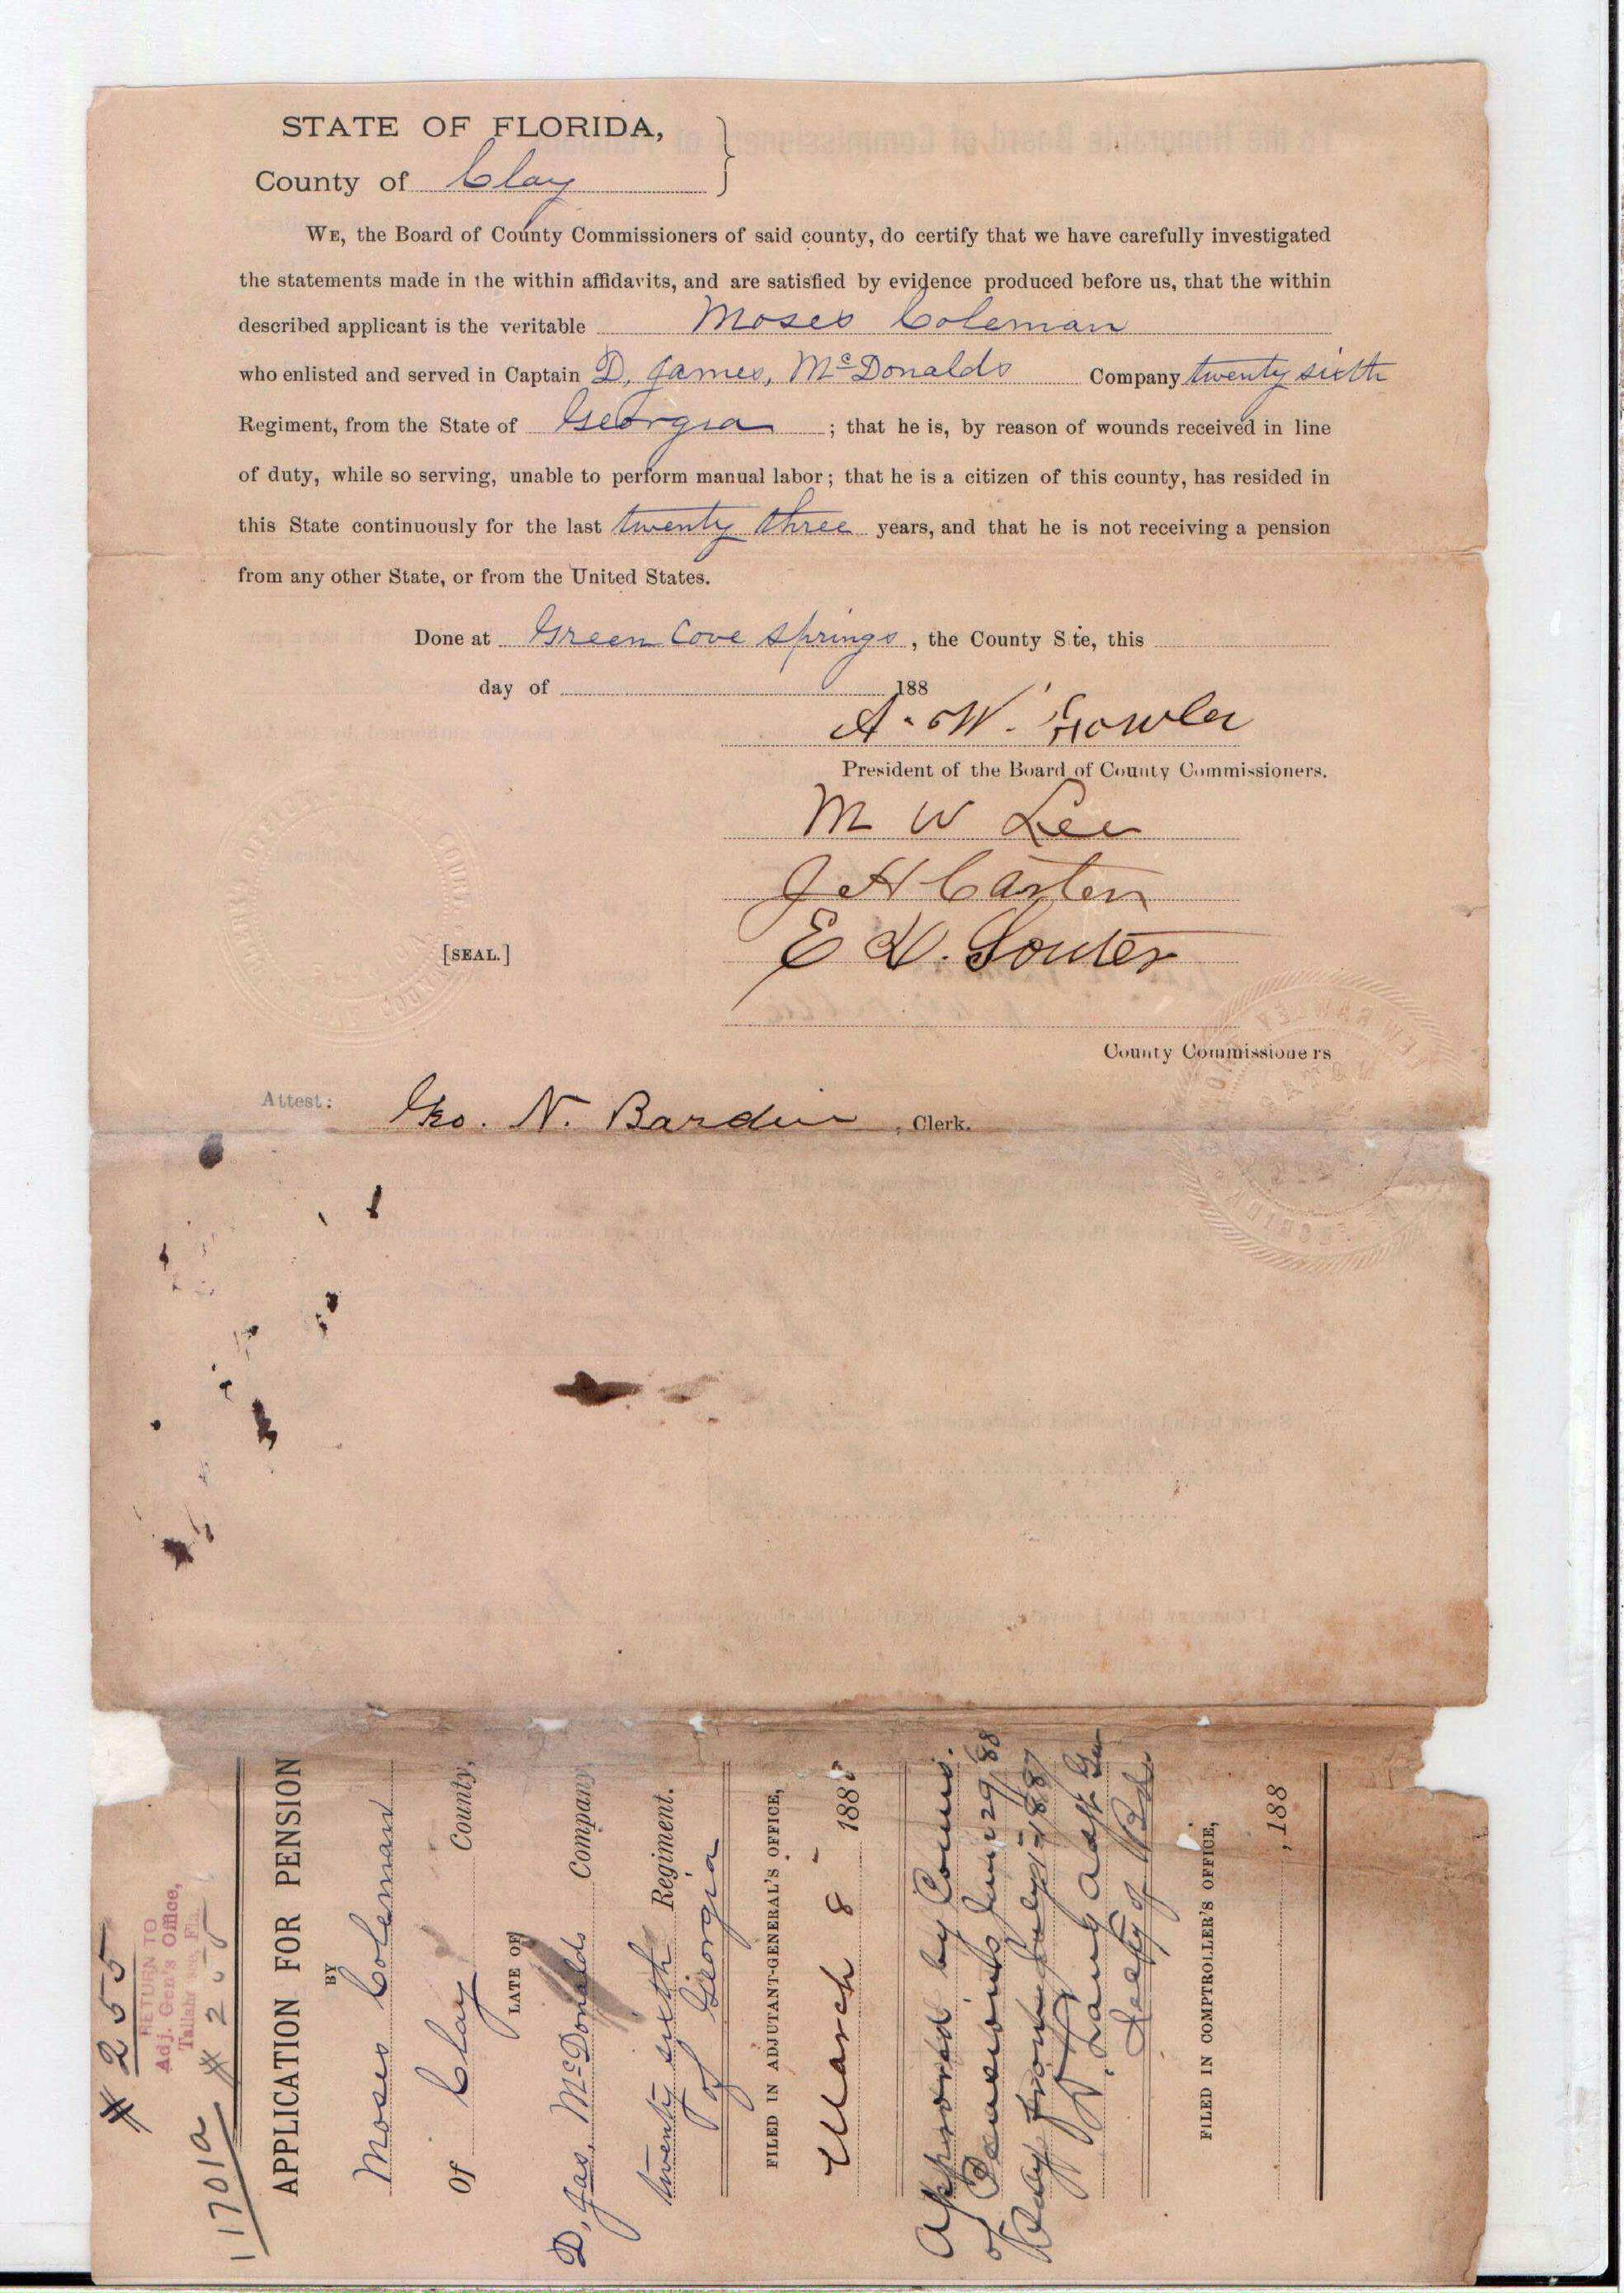 STATE OF FLORIDA,
County of Clay
WE, the Board of County Commissioners of said county, do certify that we have carefully investigated
the statements made in the within affidavits, and are satisfied by evidence produced before us, that the within
described applicant is the veritable Moses Coleman
who enlisted and served in Captain D, James, McDonalds Company twenty sixth
Regiment, from the State of Georgia ; that he is, by reason of wounds received in line
of duty, while so serving, unable to perform manual labor; that he is a citizen of this county, has resided in
this State continuously for the last twenty three years, and that he is not receiving a pension
from any other State, or from the United States.
Done at Green Cove Springs, the County Site, this
day of 188
A. W.
President of the Board of County Commissioners.
M W Lee
J H Carter
E D. Souter
[SEAL.]
County Commissioners
Attest: Geo. N. Bardin, Clerk.
# 255
RETURN TO
Adj. Gen's Office,
Tallahassee, Fla.
11701a # 205
APPLICATION FOR PENSION
BY
Moses Coleman
Of Clay County,
LATE OF
D, Jas, McDonalds Company
twenty sixth Regiment.
of Georgia
FILED IN ADJUTANT-GENERAL'S OFFICE,
March 8 - 188
Approved by Comms.
of Pensions June 29/88
Pay from July 1-1887
D. Lang Adjt Gen
Secty of Bd
FILED IN COMPTROLLER'S OFFICE,
, 188